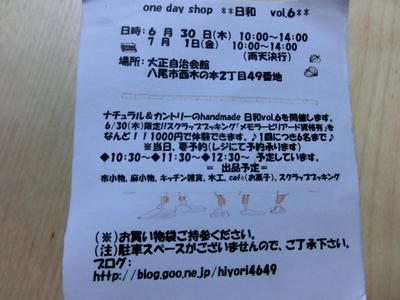 one day shop **日和 vol.6**
日時: 6月30日(木) 10:00~14:00
7月 1日(金) 10:00~14:00
(雨天決行)
場所: 大正自治会館
八尾市西木の本2丁目49番地
ナチュラル&カントリーのhandmade 日和vol.6を開催します。
6/30(木)限定!!スクラップブッキング「メモラービリアード資格有」を
なんと!!1000円で体験できます。♪1回につき6名まで♪
※当日、要予約(レジにて予約承ります)
◆10:30~◆11:30~◆12:30~ 予定しています。
= 出品予定 =
布小物、麻小物、キッチン雑貨、木工、cafe(お菓子)、スクラップブッキング
(※)お買い物袋ご持参ください。
(注)駐車スペースがございませんので、ご了承下さい。
ブログ:
http://blog.goo.ne.jp/hiyori4649